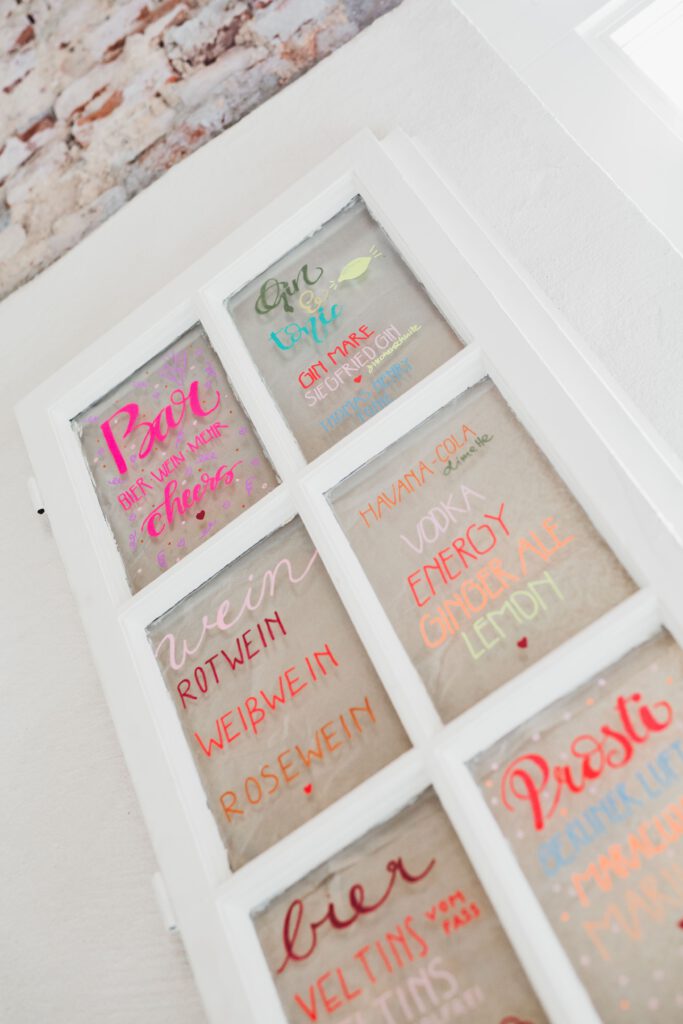 Bar
BIER WEIN MEHR
cheers
Gin
&
tonic
GIN MARE
SIEGFRIED GIN
THOMAS HENRY
TONIC
wein
ROTWEIN
WEIßWEIN
ROSEWEIN
HAVANA-COLA
limette
VODKA
ENERGY
GINGER ALE
LEMON
bier
VELTINS VOM
FASS
VELTINS
Prosti
BERLINER LUFT